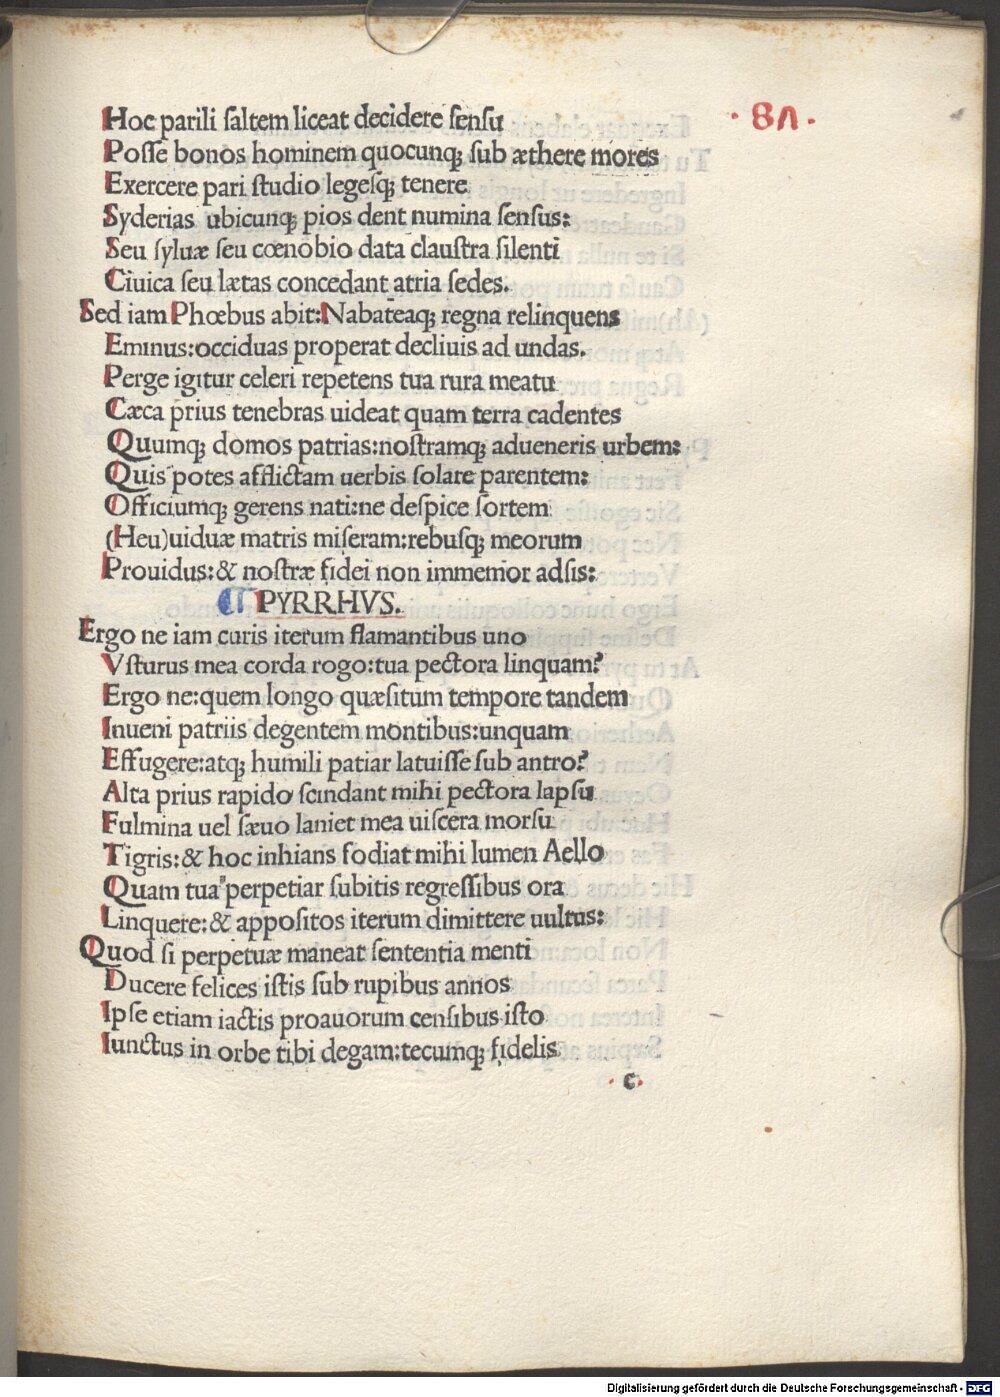 ·8Λ·
Hoc parili ſaltem liceat decidere ſenſu
Poſſe bonos hominem quocunqꝫ ſub æthere mores
Exercere pari ſtudio legeſqꝫ tenere
Syderias ubicunqꝫ pios dent numina ſenſus:
Seu ſyluæ ſeu cœnobio data clauſtra ſilenti
Ciuica ſeu lætas concedant atria ſedes.
Sed iam Phœbus abit:Nabateaqꝫ regna relinquens
Eminus:occiduas properat decliuis ad undas.
Perge igitur celeri repetens tua rura meatu
Cæca prius tenebras uideat quam terra cadentes
Quumqꝫ domos patrias:noſtramqꝫ adueneris urbem:
Quis potes afflictam uerbis ſolare parentem:
Officiumqꝫ gerens nati:ne deſpice ſortem
(Heu)uiduæ matris miſeram:rebuſqꝫ meorum
Prouidus:& noſtræ fidei non immemor adſis:
¶ PYRRHVS.
Ergo ne iam curis iterum flamantibus uno
Vſturus mea corda rogo:tua pectora linquam?
Ergo ne:quem longo quæſitum tempore tandem
Inueni patriis degentem montibus:unquam
Effugere:atqꝫ humili patiar latuiſſe ſub antro?
Alta prius rapido ſcindant mihi pectora lapſu
Fulmina uel ſæuo laniet mea uiſcera morſu
Tigris:& hoc inhians fodiat mihi lumen Aello
Quam tua perpetiar ſubitis regreſſibus ora
Linquere:& appoſitos iterum dimittere uultus:
Quod ſi perpetuæ maneat ſententia menti
Ducere felices iſtis ſub rupibus annos
Ipſe etiam iactis proauorum cenſibus iſto
Iunctus in orbe tibi degam:tecumqꝫ fidelis
·c·
Digitalisierung gefördert durch die Deutsche Forschungsgemeinschaft - DFG